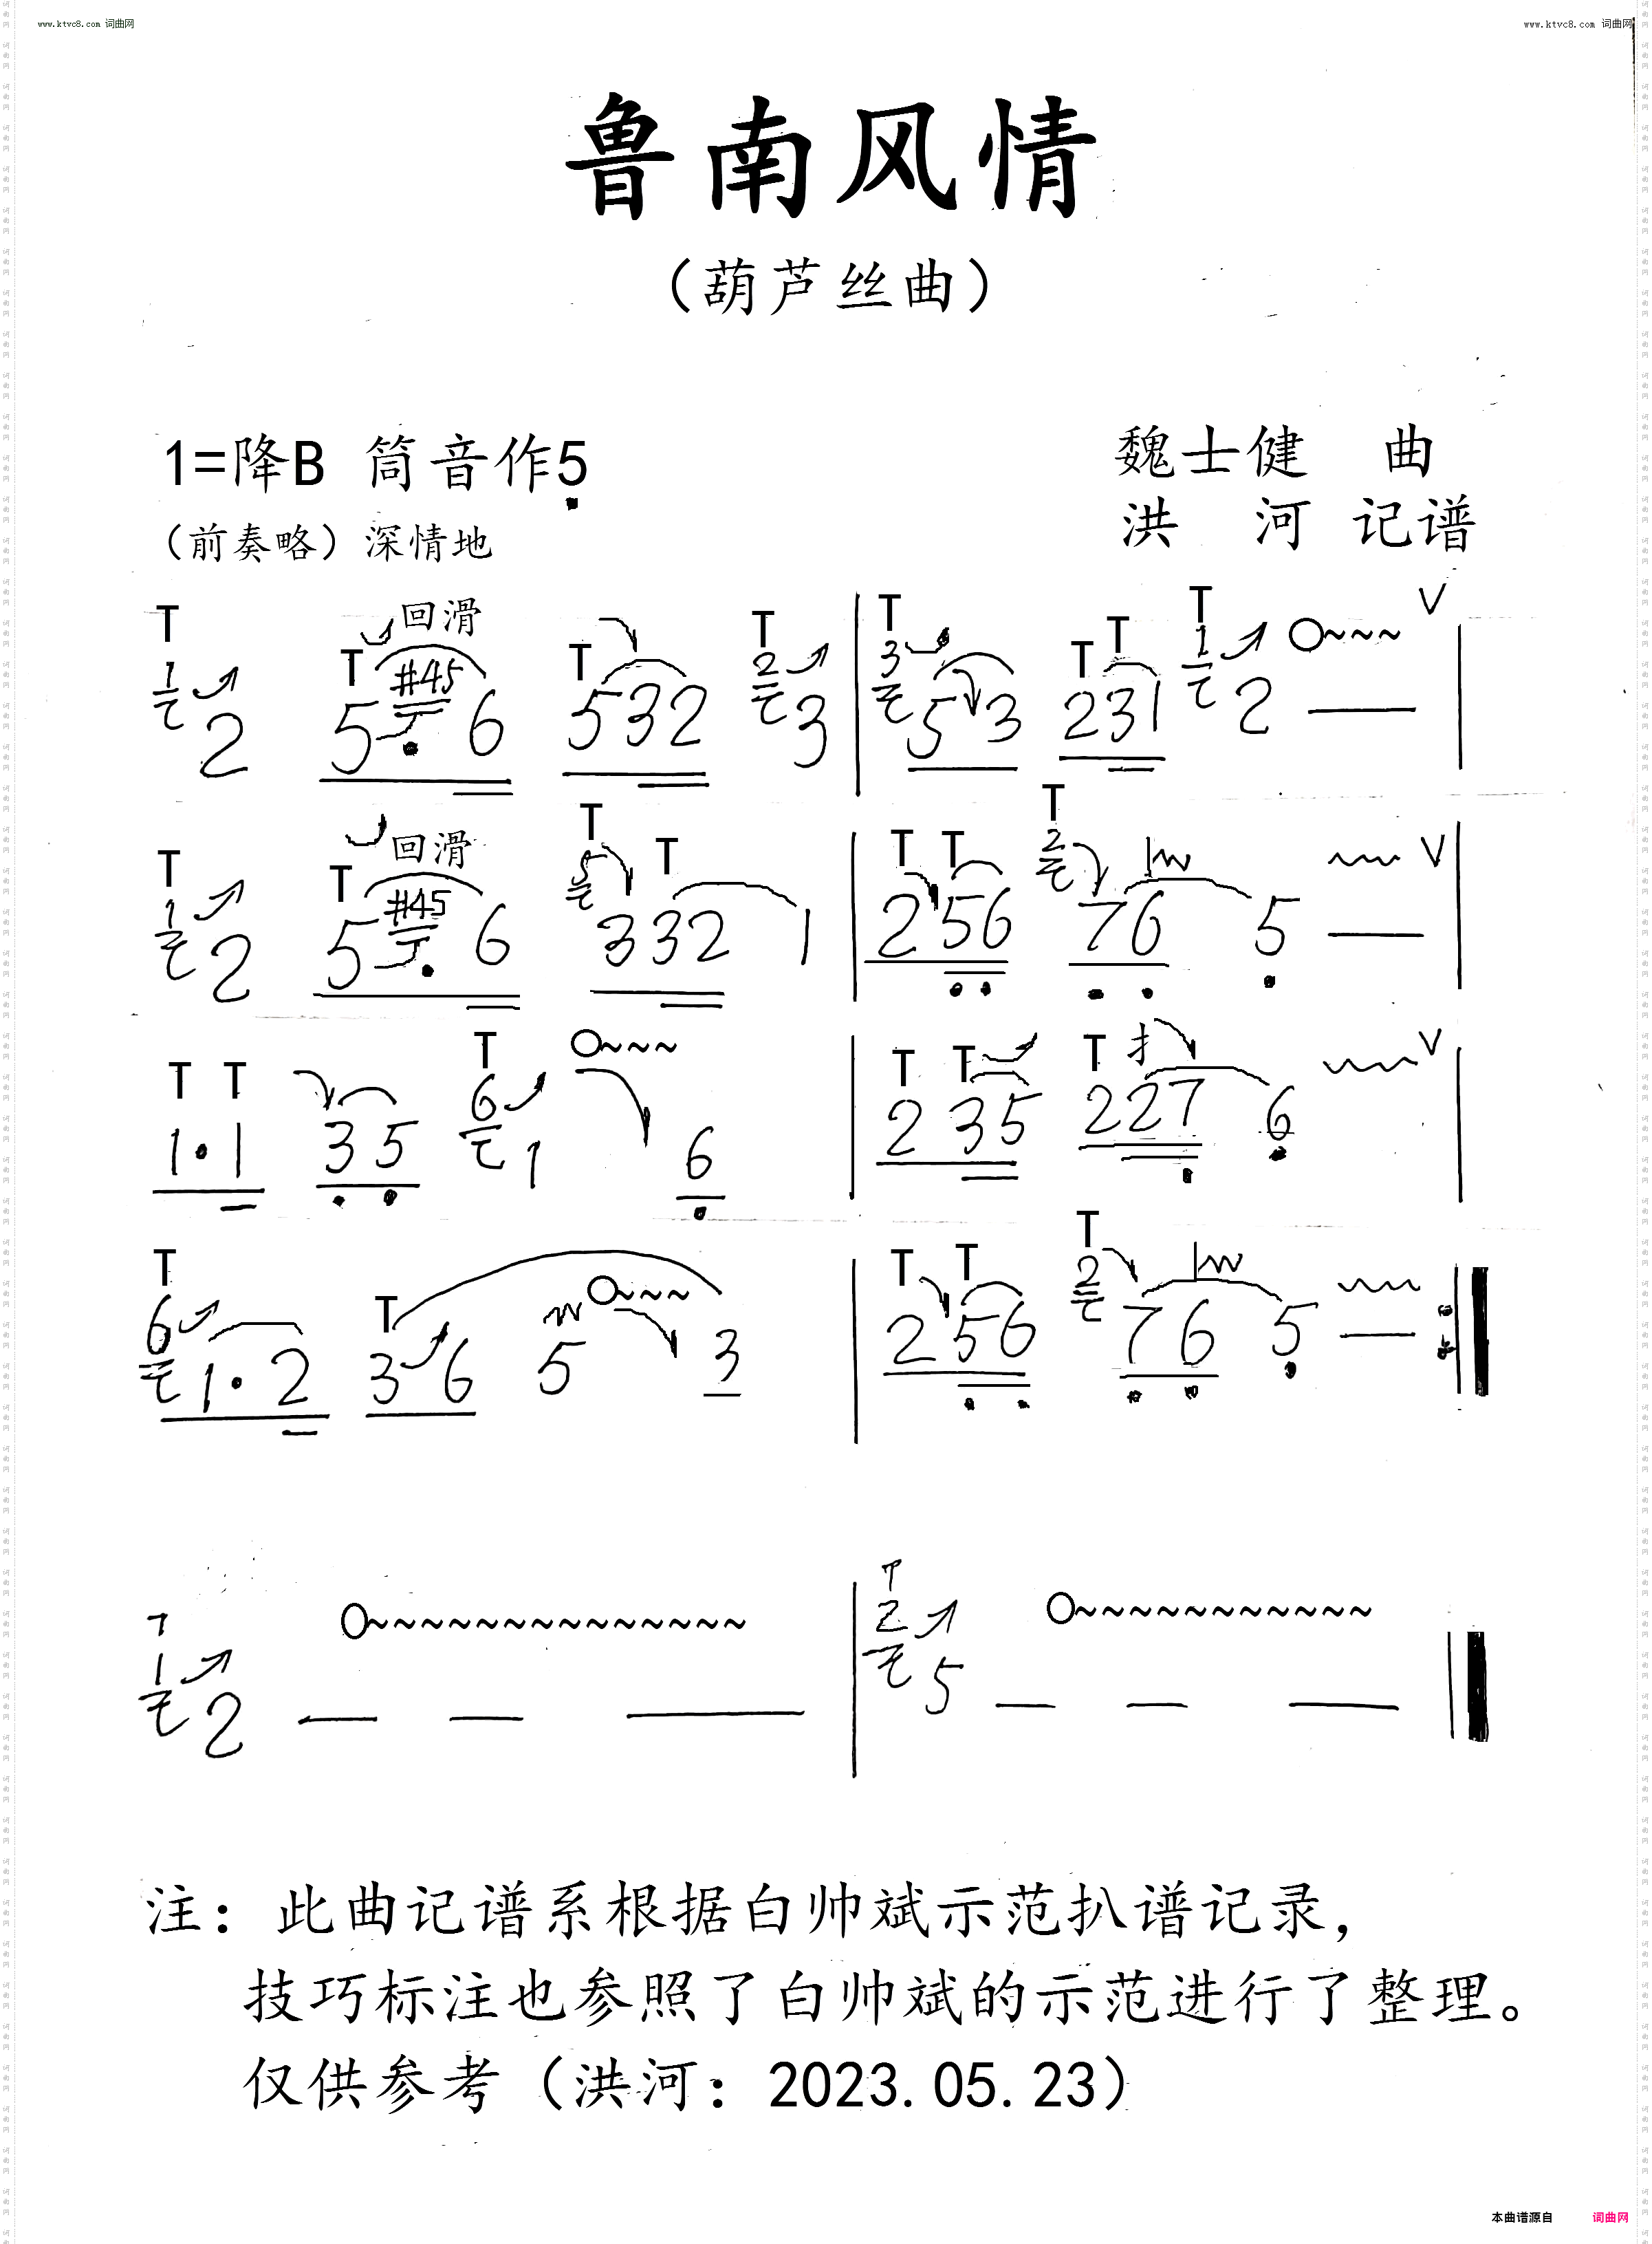 www.ktvc8.com 词曲网
www.ktvc8.com 词曲网
鲁南风情
（葫芦丝曲）
1=降B 筒音作5
魏士健 曲
（前奏略）深情地
洪 河 记谱
T T 回滑 T T T T T T V
1 2 5 #45 6 5 3 2 2 3 | 3 5 3 2 3 1 1 2 — |
T T 回滑 T T T T T V
1 2 5 #45 6 5 3 3 2 1 | 2 5 6 2 7 6 5 — |
T T T T T T 扌 V
1 · 1 3 5 6 1 6 | 2 3 5 2 2 7 6 |
T T T T T
6 1 · 2 3 6 5 3 | 2 5 6 2 7 6 5 — :|
T T
1 2 — — — | 2 5 — — — |
注：此曲记谱系根据白帅斌示范扒谱记录，
技巧标注也参照了白帅斌的示范进行了整理。
仅供参考（洪河：2023.05.23）
本曲谱源自 词曲网